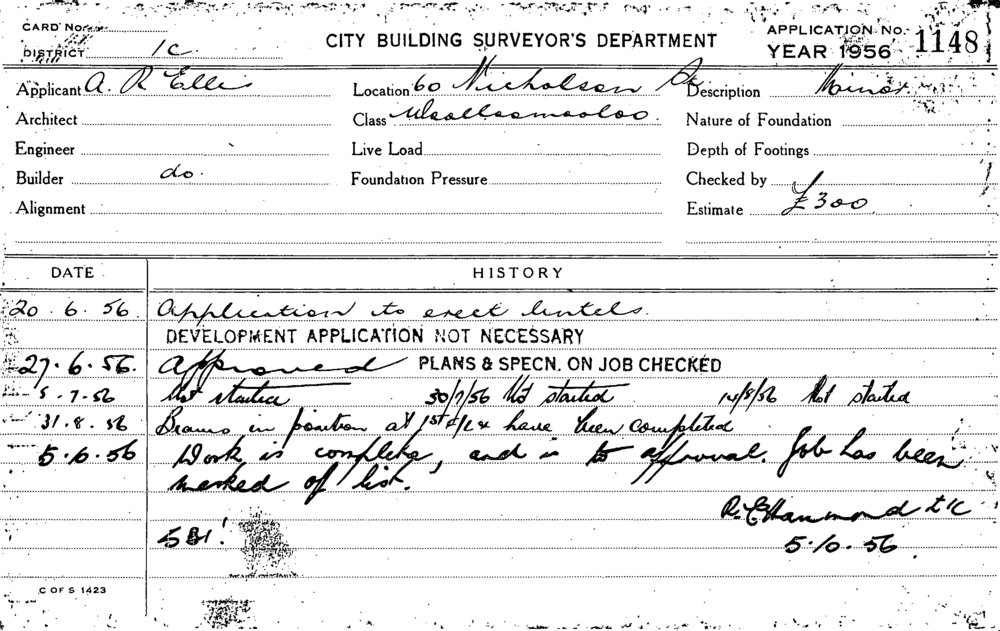 CARD No.
CITY BUILDING SURVEYOR'S DEPARTMENT
APPLICATION No. 1148
DISTRICT 1C
YEAR 1956
Applicant A. R Ellis Location 60 Nicholson St Description Minor
Architect Class Woolloomooloo Nature of Foundation
Engineer Live Load Depth of Footings
Builder do. Foundation Pressure Checked by
Alignment Estimate £300
DATE HISTORY
20.6.56 Application to erect lintels.
DEVELOPMENT APPLICATION NOT NECESSARY
27.6.56. Approved PLANS & SPECN. ON JOB CHECKED
5.7.56 Not started 30/7/56 Not started 14/8/56 Not started
31.8.56 Beams in position at 1st have been completed
5.6.56 Work is complete, and is to approval. Job has been
marked of list.
R. E Hammond
5.10.56
C OF S 1423